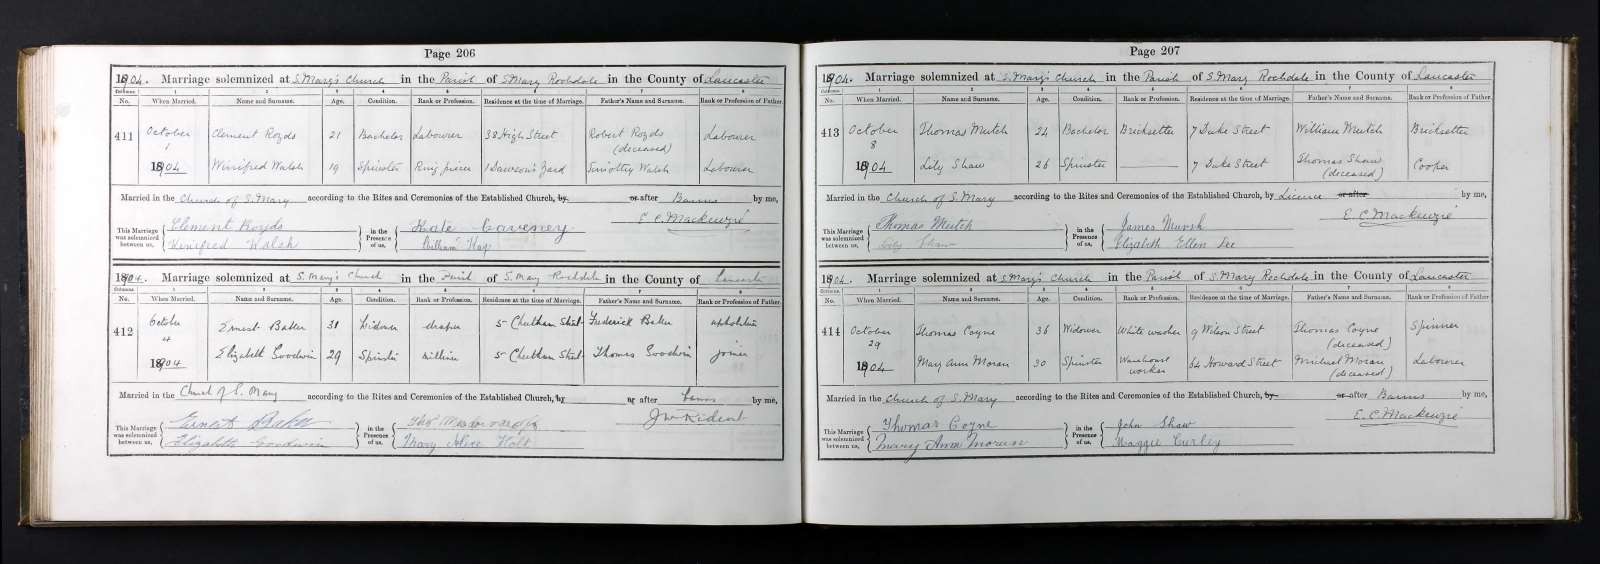 Page 206
1904. Marriage solemnized at S. Mary's Church in the Parish of S. Mary Rochdale in the County of Lancaster
Columns. 1 2 3 4 5 6 7 8
No. When Married. Name and Surname. Age. Condition. Rank or Profession. Residence at the time of Marriage. Father's Name and Surname. Rank or Profession of Father.
411 October 1 Clement Royds 21 Bachelor Labourer 38 High Street Robert Royds (deceased) Labourer
1904 Winifred Walsh 19 Spinster Ring piecer 1 Dawson's Yard Timothy Walsh Labourer
Married in the Church of S. Mary according to the Rites and Ceremonies of the Established Church, by or after Banns by me,
E. C. Mackenzie
This Marriage was solemnized between us, Clement Royds in the Presence of us, Kate Caveney
Winifred Walsh William Hay
1904. Marriage solemnized at S. Mary's Church in the Parish of S. Mary Rochdale in the County of Lancaster
Columns. 1 2 3 4 5 6 7 8
No. When Married. Name and Surname. Age. Condition. Rank or Profession. Residence at the time of Marriage. Father's Name and Surname. Rank or Profession of Father.
412 October 4 Ernest Baker 31 Widower draper 5 Cheetham Street Frederick Baker upholsterer
1904 Elizabeth Goodwin 29 Spinster milliner 5 Cheetham Street Thomas Goodwin joiner
Married in the Church of S. Mary according to the Rites and Ceremonies of the Established Church, by or after by me,
This Marriage was solemnized between us, Ernest Baker in the Presence of us,
Elizabeth Goodwin Mary Alice Holt
Page 207
1904. Marriage solemnized at S. Mary's Church in the Parish of S. Mary Rochdale in the County of Lancaster
Columns. 1 2 3 4 5 6 7 8
No. When Married. Name and Surname. Age. Condition. Rank or Profession. Residence at the time of Marriage. Father's Name and Surname. Rank or Profession of Father.
413 October 8 Thomas Mutch 24 Bachelor Bricksetter 7 Duke Street William Mutch Bricksetter
1904 Lily Shaw 26 Spinster 7 Duke Street Thomas Shaw (deceased) Cooper
Married in the Church of S. Mary according to the Rites and Ceremonies of the Established Church, by Licence or after by me,
E. C. Mackenzie
This Marriage was solemnized between us, Thomas Mutch in the Presence of us, James Marsh
Lily Shaw Elizabeth Ellen Lee
1904. Marriage solemnized at S. Mary's Church in the Parish of S. Mary Rochdale in the County of Lancaster
Columns. 1 2 3 4 5 6 7 8
No. When Married. Name and Surname. Age. Condition. Rank or Profession. Residence at the time of Marriage. Father's Name and Surname. Rank or Profession of Father.
414 October 29 Thomas Coyne 36 Widower White washer 9 Wilson Street Thomas Coyne (deceased) Spinner
1904 Mary Ann Moran 30 Spinster Warehouse worker 64 Howard Street Michael Moran (deceased) Labourer
Married in the Church of S. Mary according to the Rites and Ceremonies of the Established Church, by or after Banns by me,
E. C. Mackenzie
This Marriage was solemnized between us, Thomas Coyne in the Presence of us, John Shaw
Mary Ann Moran Maggie Curley